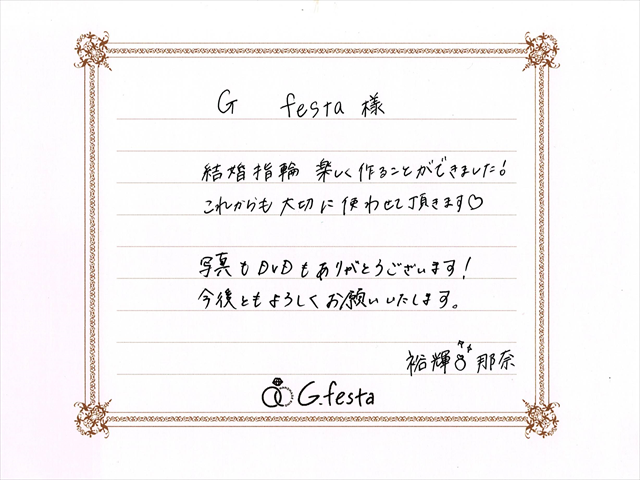 G festa 様
結婚指輪 楽しく作ることができました!
これからも大切に使わせて頂きます♡
写真もDVDもありがとうございます!
今後ともよろしくお願いいたします。
裕輝 那奈
G.festa